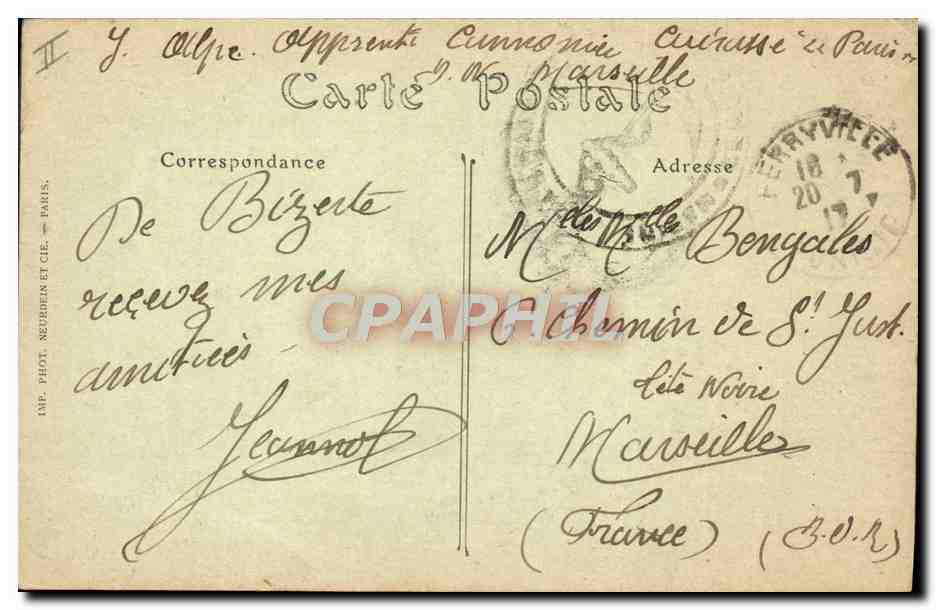 II
J. Alpe. Apprenti Cannonier Cuirassé "le Paris"
Marseille
Carte Postale
Correspondance
Adresse
FERRYVILLE
18 7
20 17
IMP. PHOT. NEURDEIN ET CIE. — PARIS.
De Bizerte
recevez mes
amitiés -
Jeannot
Mlles Bengales
6 Chemin de St Just.
Marseille
(France) (B.D.R)
CPAPHIL